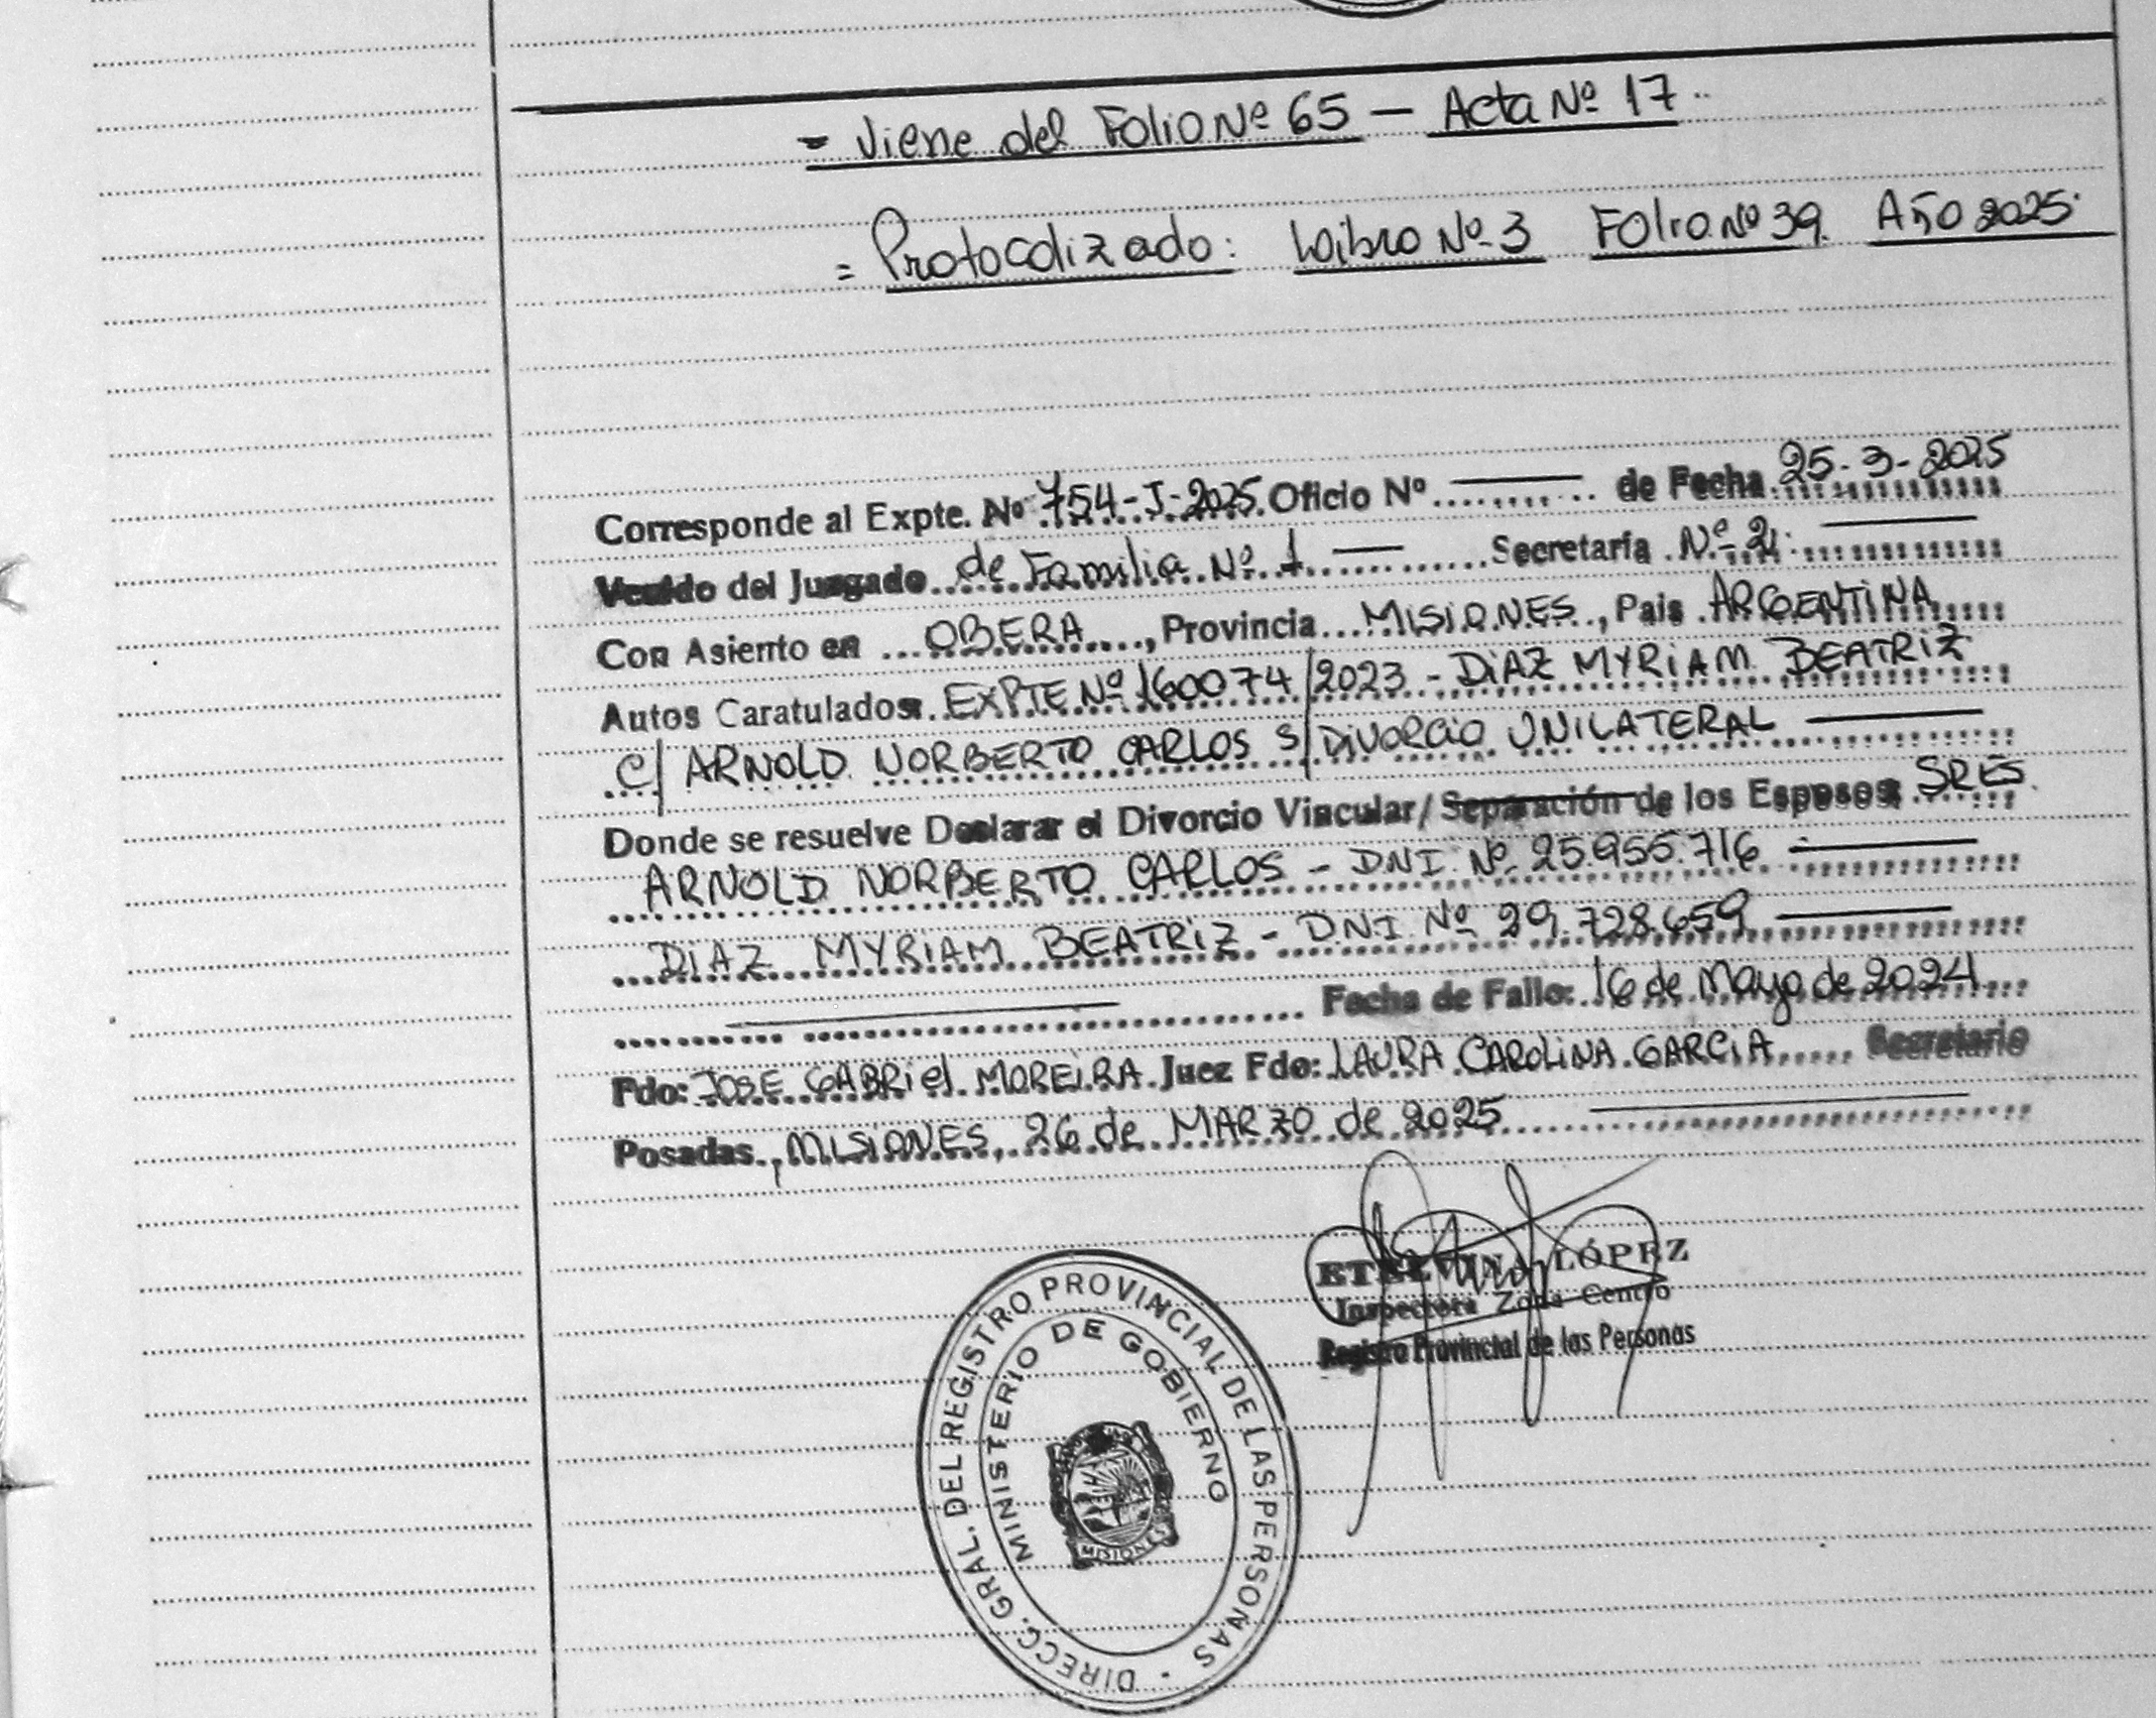 = Viene del Folio Nº 65 — Acta Nº 17..
= Protocolizado: Libro Nº 3 Folio Nº 39. Año 2025.
Corresponde al Expte. Nº 754-J-2025. Oficio Nº ......... de Fecha 25-3-2025
Venido del Juzgado de Familia Nº 1 ......... Secretaría Nº 2.
Con Asiento en ... OBERA ...., Provincia ... MISIONES .., Pais . ARGENTINA
Autos Caratulados: EXPTE Nº 160074/2023 - DiAZ MYRiAM BEATRiZ
C/ ARNOLD NORBERTO CARLOS S/ DiVORCiO UNILATERAL
Donde se resuelve Declarar el Divorcio Vincular/ Separación de los Esposos: SRES.
ARNOLD NORBERTO CARLOS - DNI Nº 25.955.716
DiAZ MYRIAM BEATRiZ - DNI Nº 29.728.659
Fecha de Fallo: 16 de Mayo de 2024
Fdo: JOSE GABRiel MOREiRA. Juez Fdo: LAURA CAROLiNA GARCiA ..... Secretario
Posadas, MISiONES, 26 de MARZO de 2025
LÓPEZ
Inspectora Zona Centro
Registro Provincial de las Personas
DIRECC. GRAL. DEL REGISTRO PROVINCIAL DE LAS PERSONAS -
MINISTERIO DE GOBIERNO
MISIONES